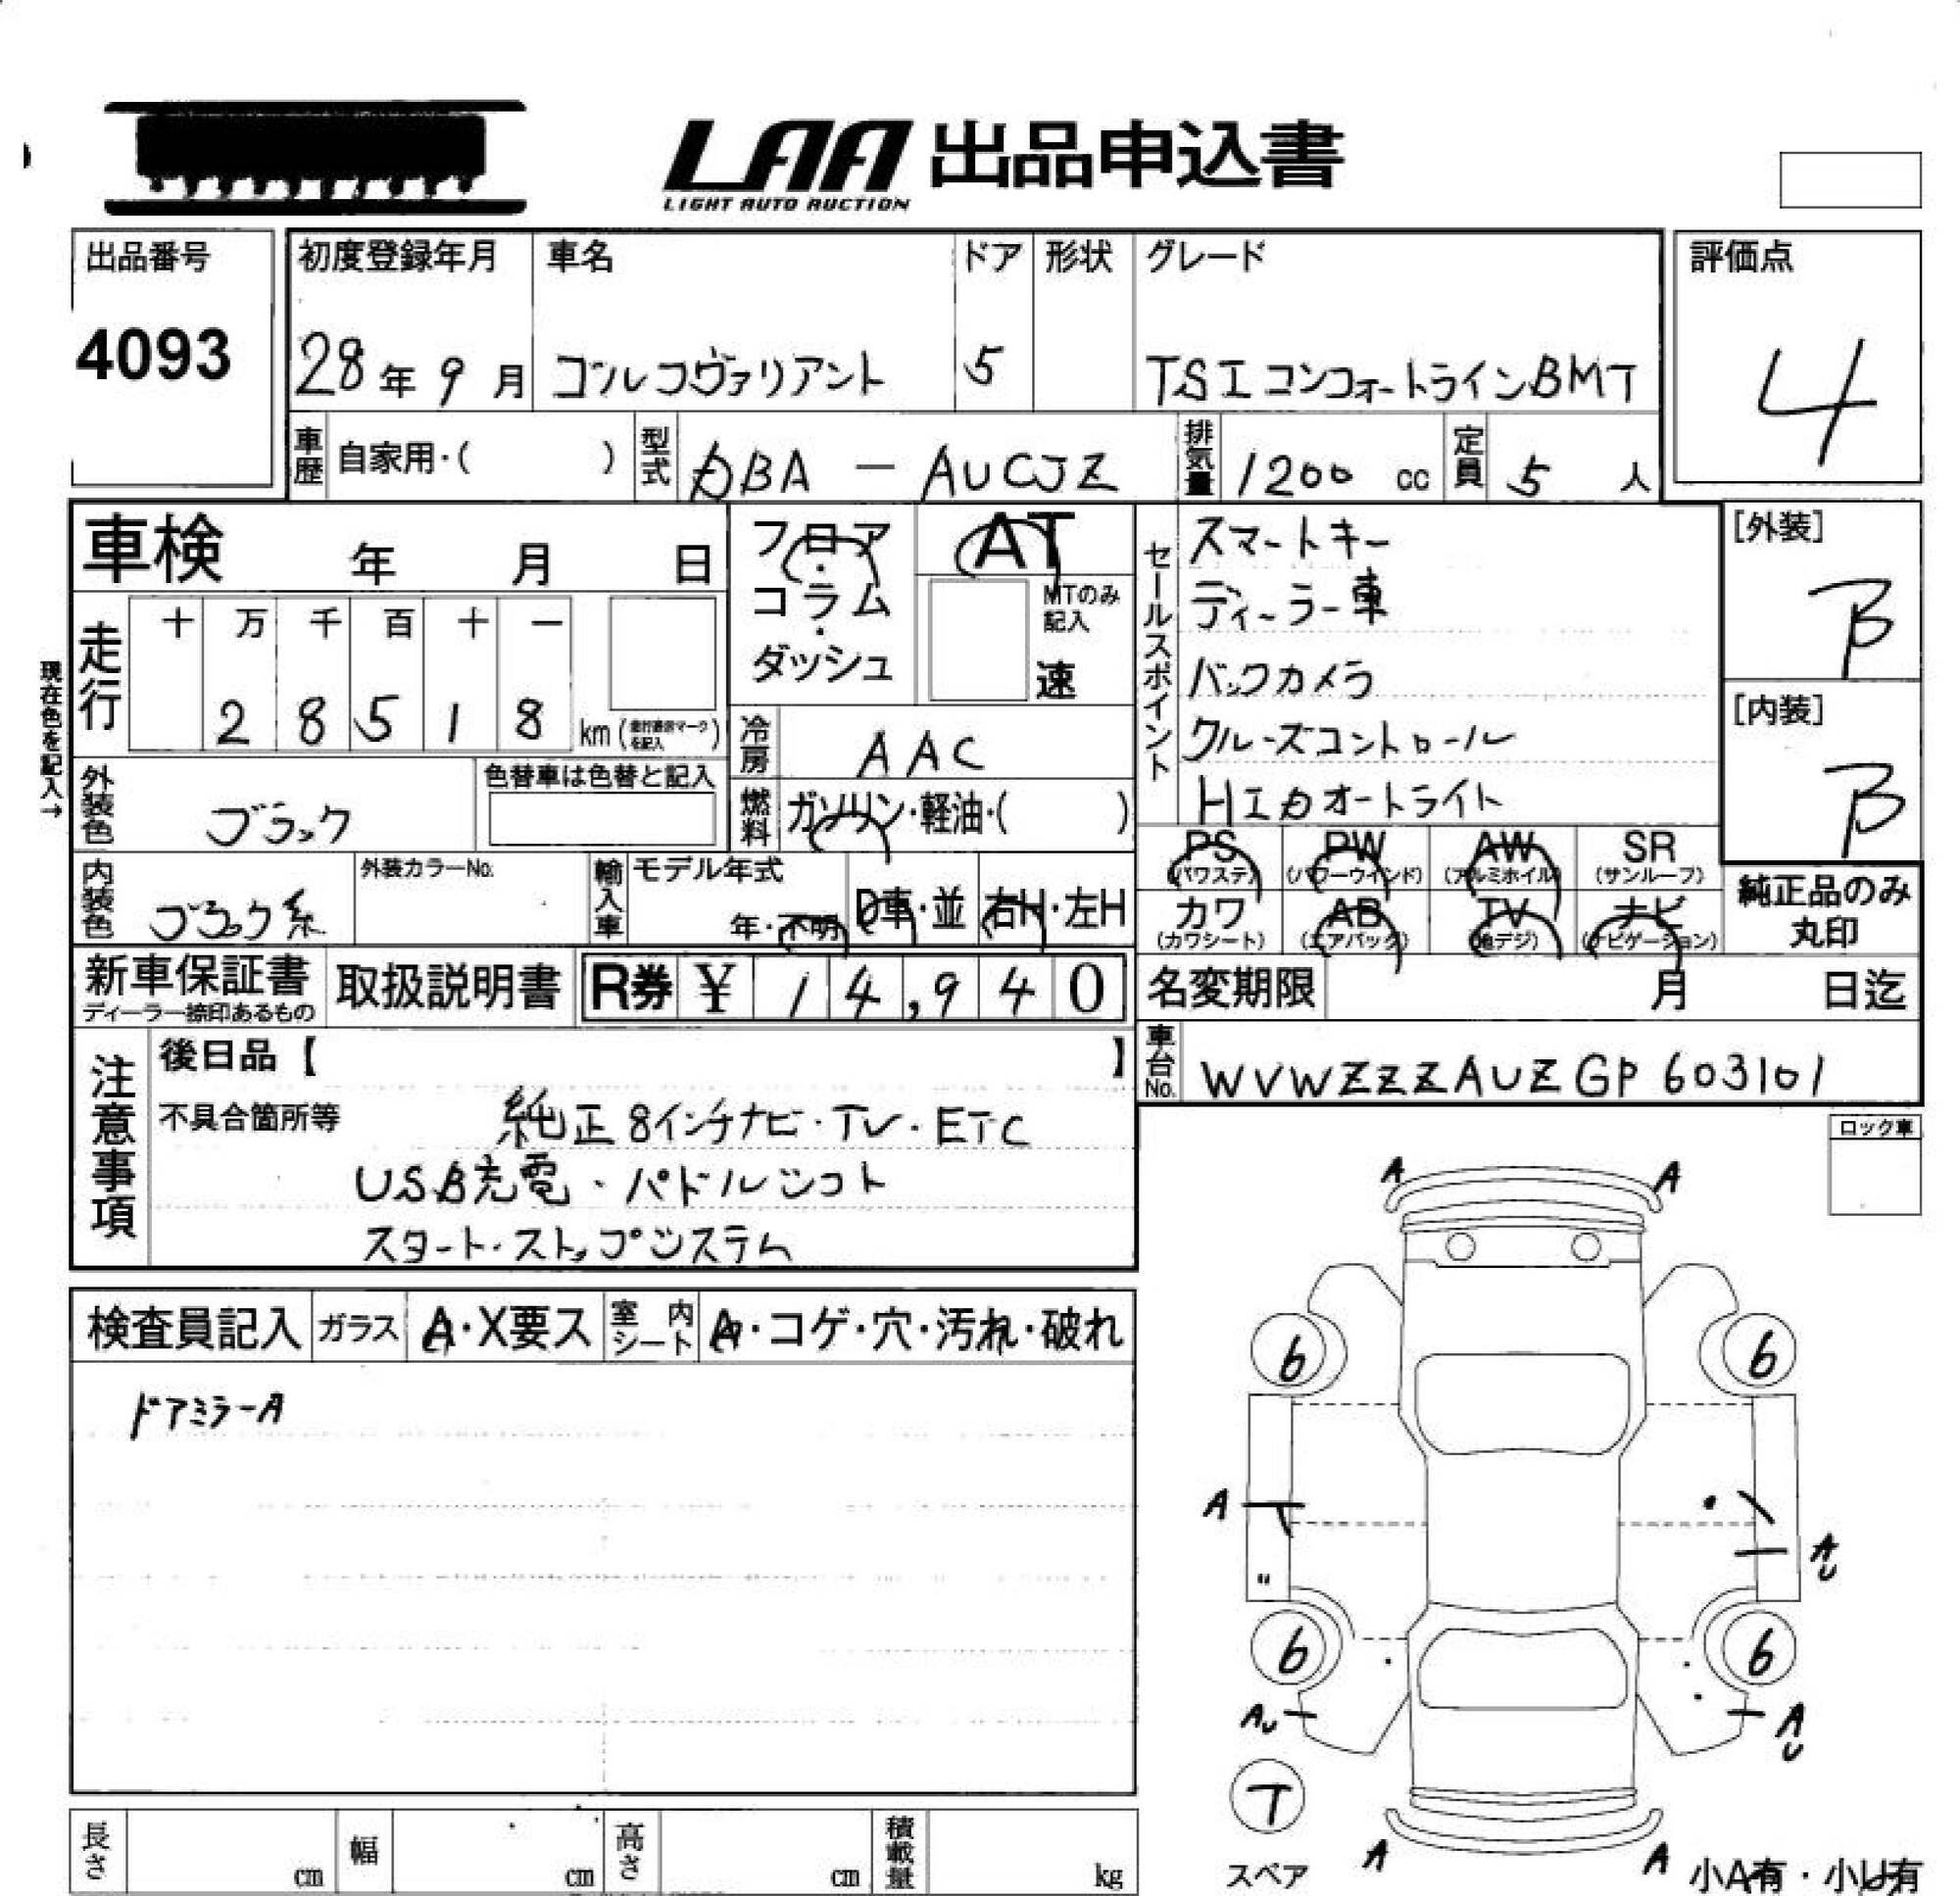 LAA 出品申込書
LIGHT AUTO AUCTION
出品番号
4093
初度登録年月
28年9月
車名
ゴルフヴァリアント
ドア
5
形状
グレード
TSIコンフォートラインBMT
評価点
4
車歴 自家用・( )
型式 DBA - AUCJZ
排気量 1200 cc
定員 5 人
車検 年 月 日
フロア・コラム・ダッシュ
AT
MTのみ記入
速
現在色を記入→
走行
十 万 千 百 十 一
2 8 5 1 8 km (走行要確マークを記入)
冷房 AAC
燃料 ガソリン・軽油・( )
外装色 ブラック
色替車は色替と記入
内装色 ブラック系
外装カラーNo.
輸入車 モデル年式
年・不明 D車・並 右H・左H
セールスポイント
スマートキー
ディーラー車
バックカメラ
クルーズコントロール
HIDオートライト
[外装]
B
[内装]
B
PS (パワステ)
PW (パワーウインド)
AW (アルミホイル)
SR (サンルーフ)
カワ (カワシート)
AB (エアバック)
TV (地デジ)
ナビ (ナビゲーション)
純正品のみ丸印
新車保証書
ディーラー捺印あるもの
取扱説明書
R券 ¥ 14,940
名変期限 月 日迄
車台No. WVWZZZAUZGP603101
注意事項
後日品【 】
不具合箇所等 純正8インチナビ・TV・ETC
USB充電・パドルシフト
スタート・ストップシステム
ロック車
検査員記入 ガラス A・X要ス 室内シート A・コゲ・穴・汚れ・破れ
ドアミラーA
A A
6 6
A
AU
6 6
AU AU
T
スペア
A A
小A有・小U有
長さ cm 幅 cm 高さ cm 積載量 kg